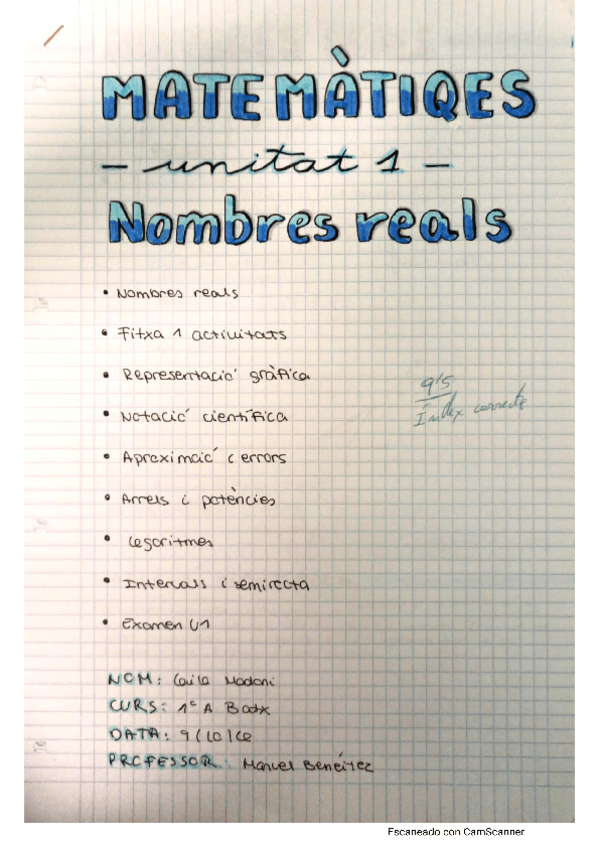 MATEMÀTIQES
- unitat 1 -
Nombres reals
• Nombres reals
• Fitxa 1 activitats
• Representació gràfica
• Notació científica
9'5
Índex correcte
• Aproximació i errors
• Arrels i potències
• Logaritmes
• Intervals i semirecta
• Examen U1
NOM: Laila Madani
CURS: 1º A Batx
DATA: 9/10/
PROFESSOR: Manuel Beneítez
Escaneado con CamScanner